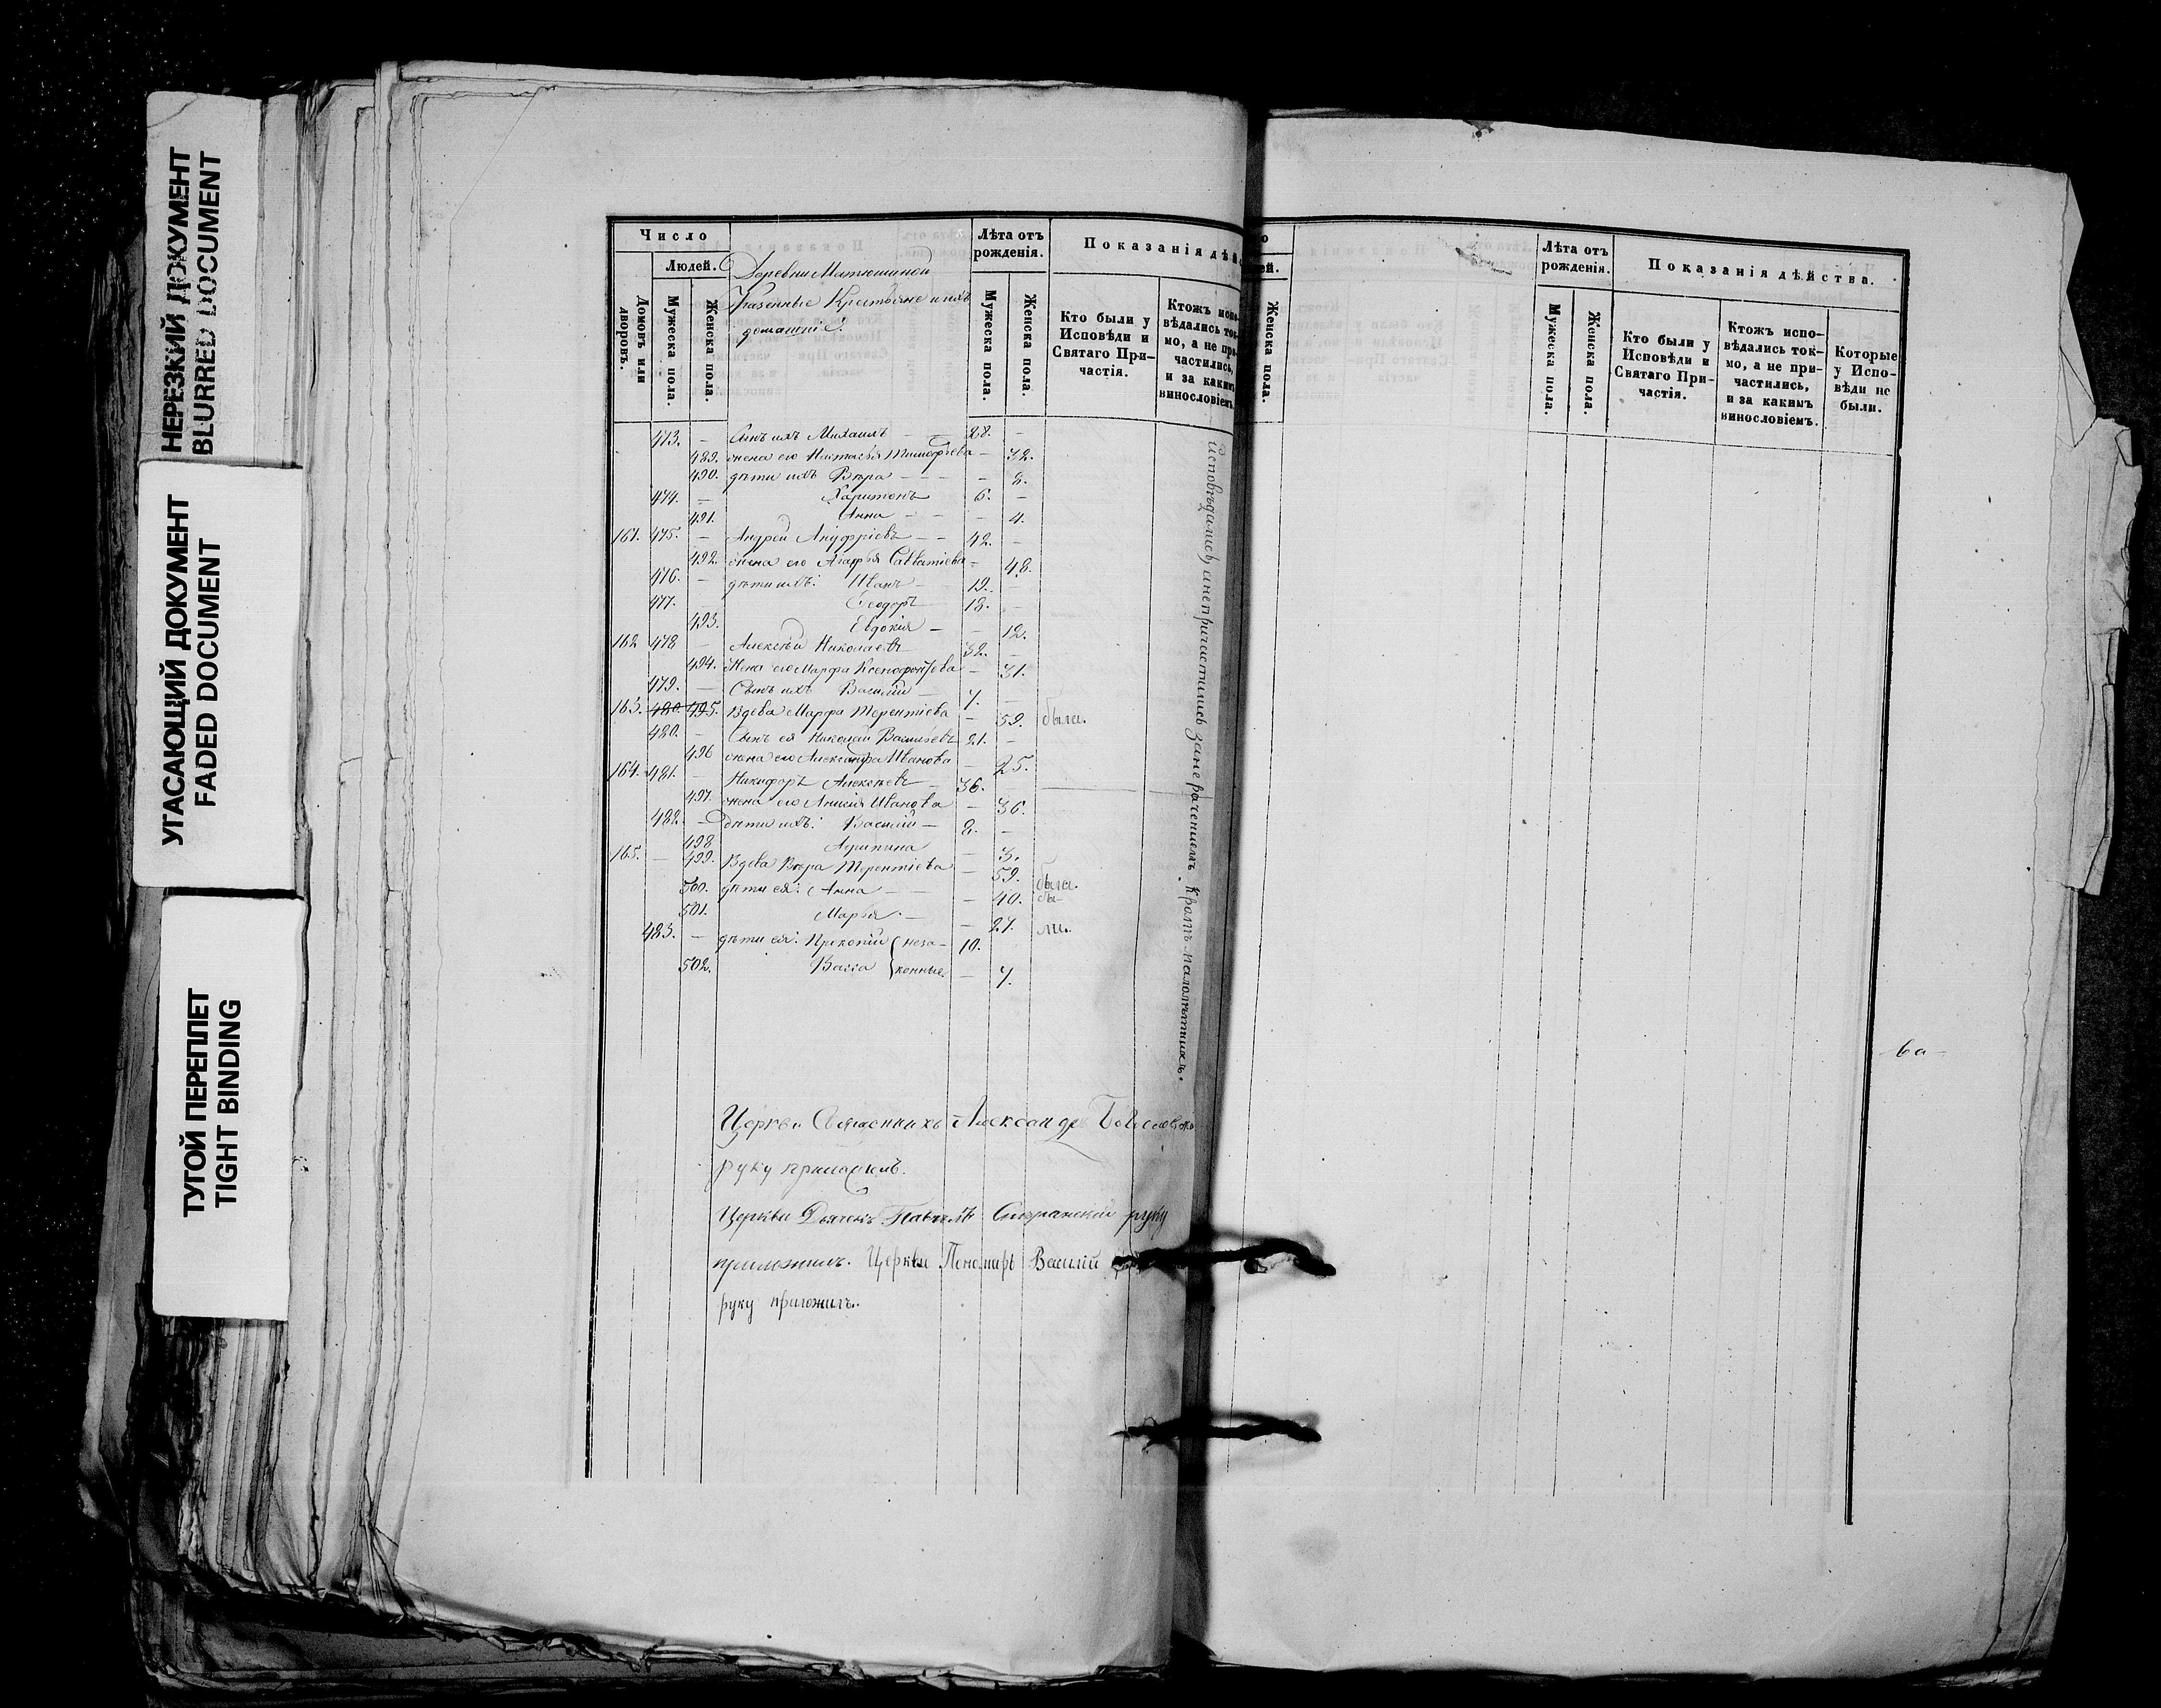 НЕРЕЗКИЙ ДОКУМЕНТ
BLURRED DOCUMENT
УГАСАЮЩИЙ ДОКУМЕНТ
FADED DOCUMENT
ТУГОЙ ПЕРЕПЛЕТ
TIGHT BINDING
Число
Людей.
Домовъ или дворовъ.
Мужеска пола.
Женска пола.
Деревни Матюшиной
Казенные Крестьяне и ихъ
домашніе.
Лѣта отъ рожденія.
Мужеска пола.
Женска пола.
Показанія дѣй
Кто были у Исповѣди и Святаго При-
частія.
Ктожъ испо-
вѣдались ток-
мо, а не при-
частились,
и за какимъ
винословіемъ.
473. – Сынъ ихъ Михаилъ – 28. –
489. жена его Настасья Тимофеева – 32.
490. дѣти ихъ Вѣра – – 8.
474. – Харитонъ 6. –
491. Анна – – 4.
161. 475. – Андрей Ануфріевъ – 42. –
492. жена его Агафья Савватіева – 48.
476. – дѣти ихъ: Иванъ – 19. –
477. – Ѳеодоръ 18. –
493. Евдокія – – 12.
162 478 – Алексѣй Николаевъ 32. –
494. Жена его Марфа Ксенофонтова – 31.
479. – Сынъ ихъ Василій – 7. –
163. 480. 495. Вдова Марфа Терентіева – 59. была.
480. – Сынъ ея Николай Васильевъ 21. –
496 жена его Александра Иванова – 25.
164. 481. – Никифоръ Алексѣевъ – 36. –
497. жена его Анисія Иванова – 36.
482. – Дѣти ихъ: Василій – 8. –
498 Агрипина – 3.
165. – 499. Вдова Вѣра Терентіева – 59. была.
500. дѣти ея: Анна – – 40. бы-
501. Марья. – – 27. ли.
483. – дѣти ея: Прокопій неза- 10.
502. Васса конные. – 7.
Исповѣдались, а не причастились за нераченіемъ. Кромѣ малолѣтнихъ.
Церкви Священникъ Александръ
руку приложилъ.
Церкви Дьячекъ Павелъ Сперанскій руку
приложилъ. Церкви Пономарь Василій
руку приложилъ.
о
ей.
Женска пола.
Лѣта отъ рожденія.
Мужеска пола.
Женска пола.
Показанія дѣйства.
Кто были у Исповѣди и Святаго При-
частія.
Ктожъ испо-
вѣдались ток-
мо, а не при-
частились,
и за какимъ
винословіемъ.
Которые
у Испо-
вѣди не
были.